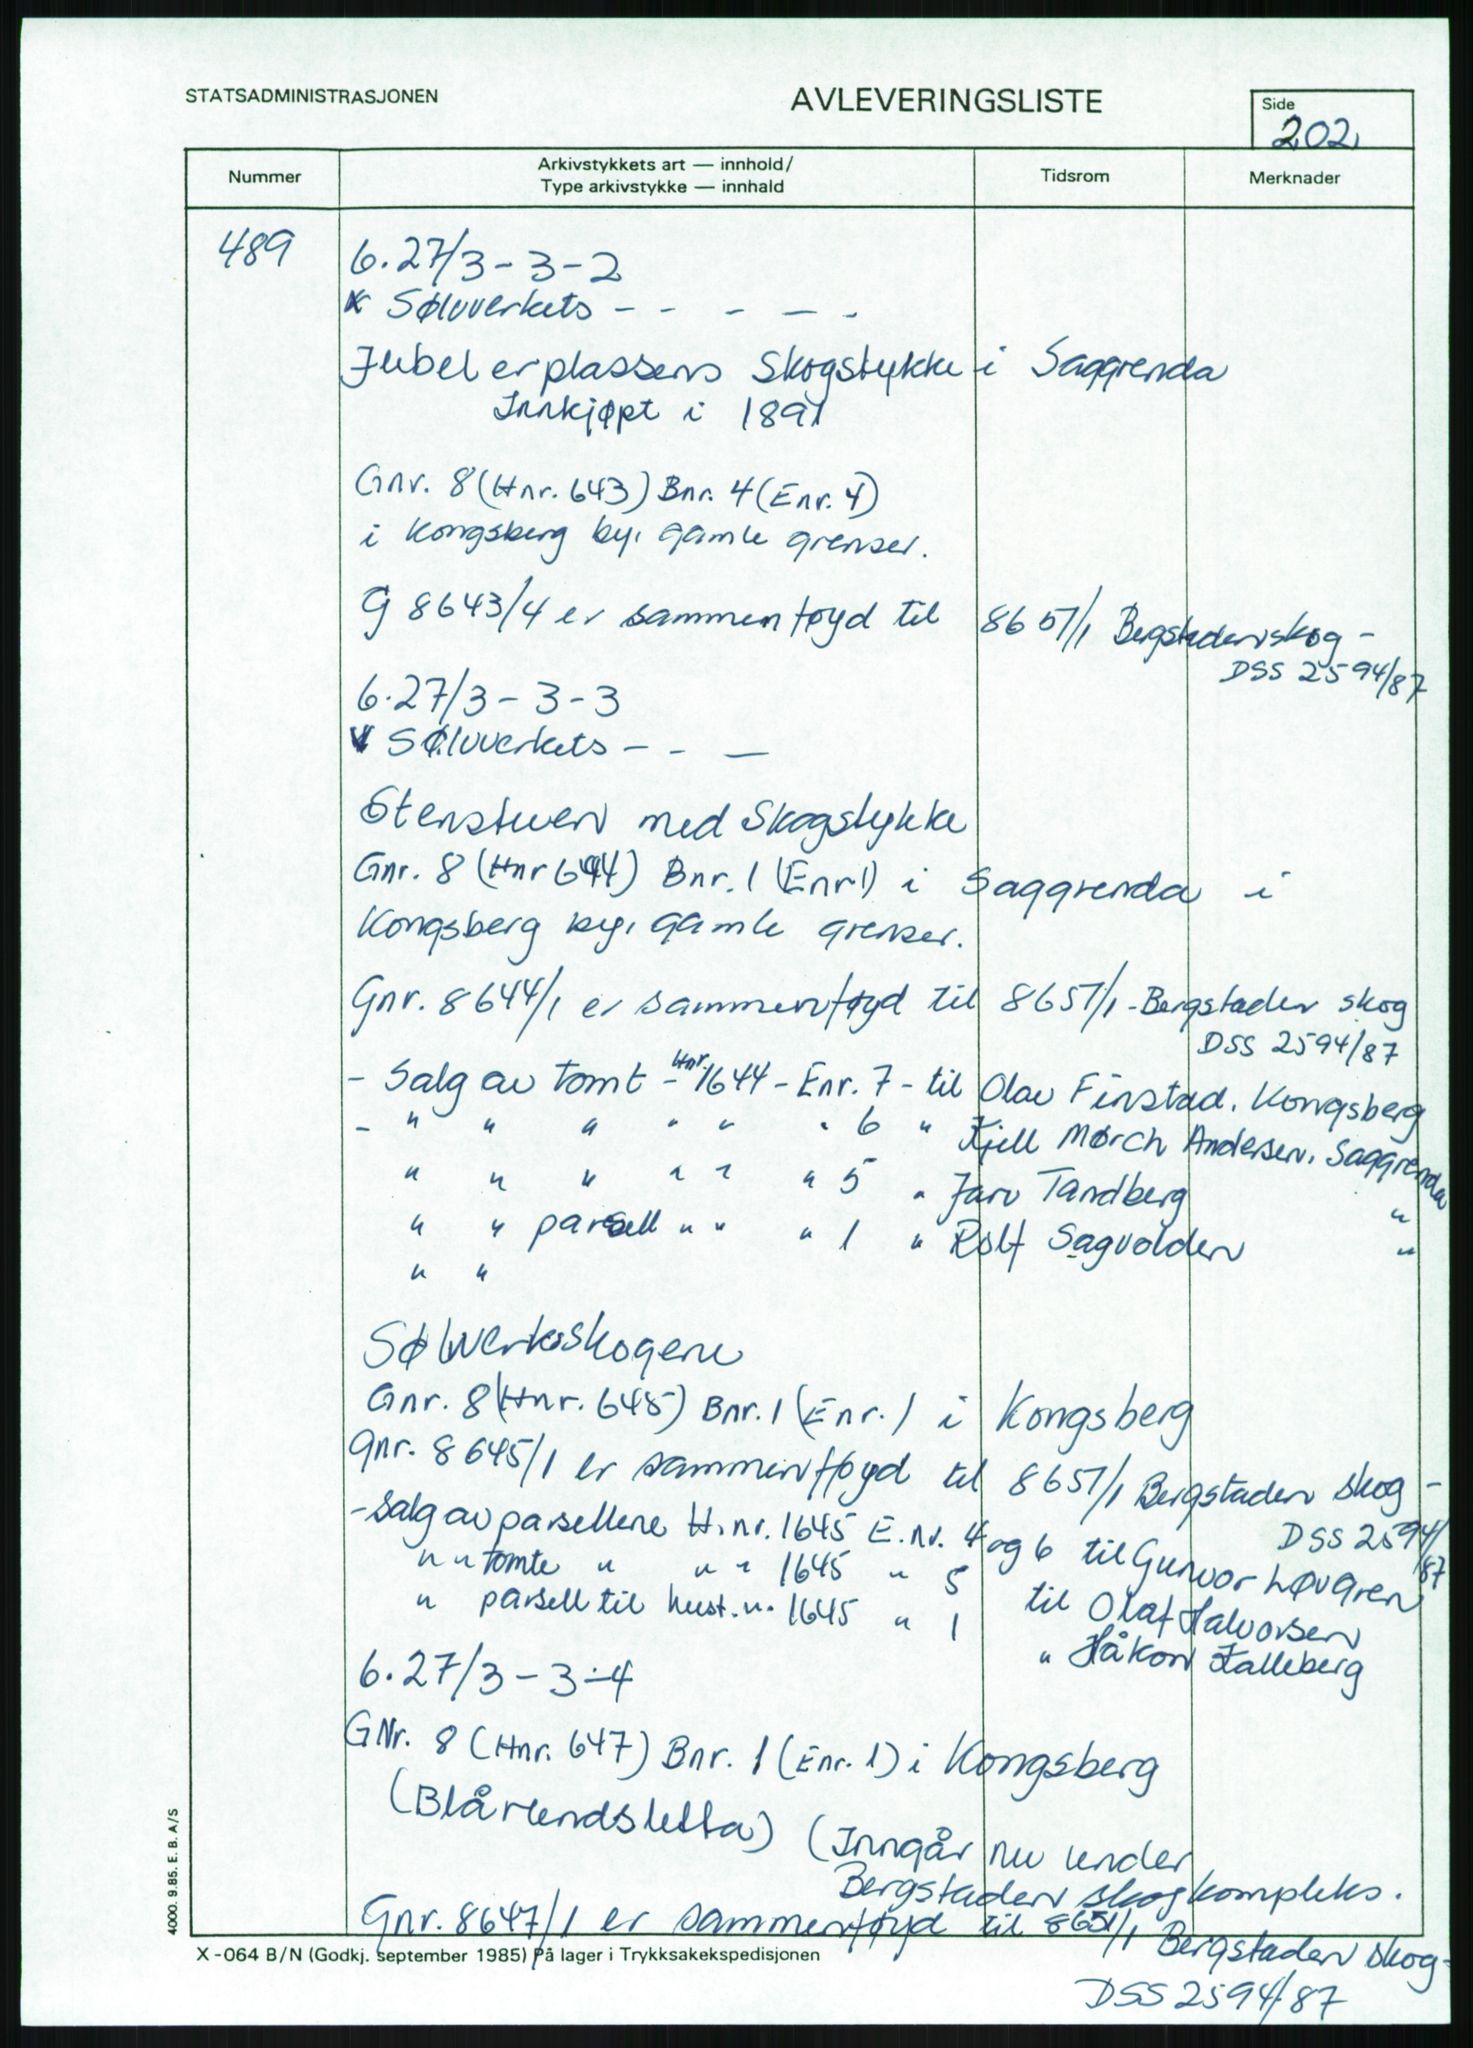 STATSADMINISTRASJONEN
AVLEVERINGSLISTE
Side
202
Nummer
Arkivstykkets art — innhold/
Type arkivstykke — innhald
Tidsrom
Merknader
489
6.27/3-3-2
Sølvverkets - - - - -
Jubelerplassens Skogstykke i Saggrenda
Innkjøpt i 1891
Gnr. 8 (Hnr. 643) Bnr. 4 (Enr. 4)
i Kongsberg by, gamle grenser.
G 8643/4 er sammenføyd til 8651/1 Bergstadens skog -
DSS 2594/87
6.27/3-3-3
Sølvverkets - - -
Stenstuen med Skogstykke
Gnr. 8 (Hnr 644) Bnr. 1 (Enr 1) i Saggrenda i
Kongsberg by, gamle grenser.
Gnr. 8644/1 er sammenføyd til 8651/1 - Bergstaden skog
DSS 2594/87
- Salg av tomt - Hnr. 1644 - Enr. 7 - til Olav Finstad, Kongsberg
- " " " " " " 6 " Kjell Mørch Andersen, Saggrenda
" " " " " " 5 " Jarv Tandberg "
" " parsell " " " 1 " Rolf Sagvolden "
" "
Sølvverksskogene
Gnr. 8 (Hnr. 645) Bnr. 1 (Enr. 1 i Kongsberg
Gnr. 8645/1 er sammenføyd til 8651/1 Bergstaden skog -
DSS 2594/87
- Salg av parsellene H.nr. 1645 E.nr. 4 og 6 til Gunvor Løvgren
" " tomte " " " 1645 " 5 til Olaf Halvorsen
" parsell til hust.n. 1645 " 1 " Håkon Kalleberg
6.27/3-3-4
GNr. 8 (Hnr. 647) Bnr. 1 (Enr. 1) i Kongsberg
(Blårundsletta) (Inngår nu under
Bergstaden skogkompleks.
Gnr. 8647/1 er sammenføyd til 8651/1 Bergstaden skog -
DSS 2594/87
4000. 9.85. E. B. A/S
X-064 B/N (Godkj. september 1985) På lager i Trykksakekspedisjonen